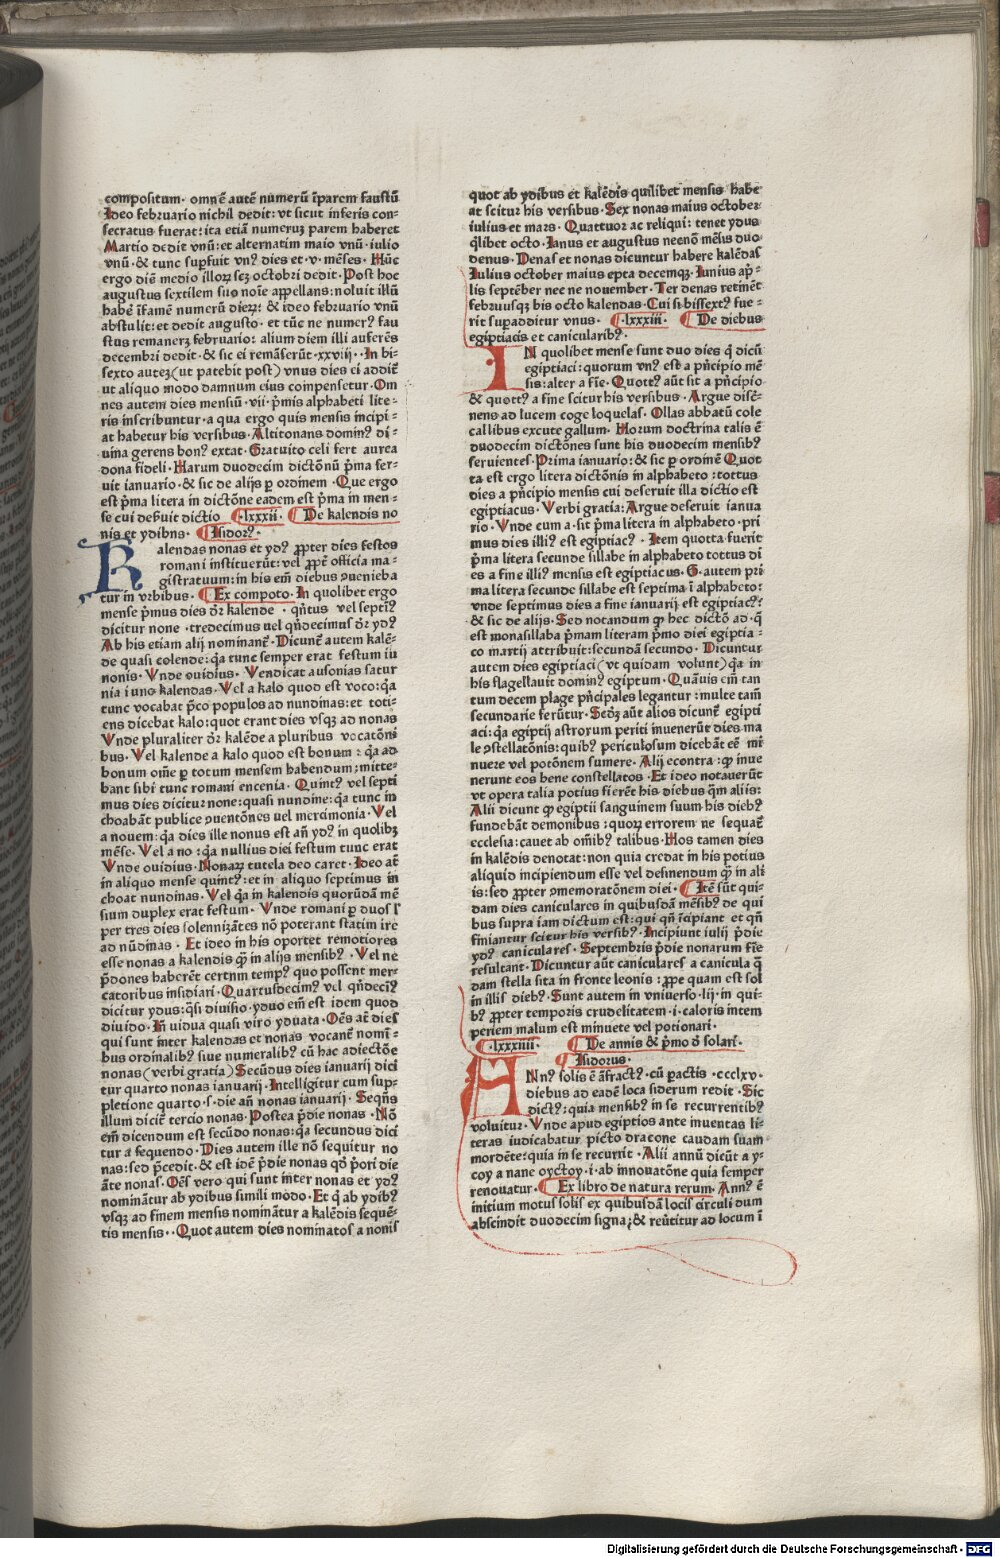 compositum· omnē autē numerū īparem faustū
Ideo februario nichil dedit: vt sicut inferis con⸗
secratus fuerat: ita etiā numeruꝫ parem haberet
Martio dedit vnū: et alternatim maio vnū· iulio
vnū· & tunc supfuit vnꝰ dies et ·v· mēses· Hūc
ergo diē medio illoꝝ sꝫ octobri dedit· Post hoc
augustus sextilem suo noīe appellans: noluit illū
habē īfamē numerū dieꝝ: & ideo februario vnū
abstulit: et dedit augusto· et tūc ne numerꝰ fau
stus remaneret februario: alium diem illi auferēs
decembri dedit· & sic ei remāserūt ·xxviij· · In bi⸗
sexto auteꝫ (ut patebit post) vnus dies ei addit̄
ut aliquo modo damnum eius compensetur· Om
nes autem dies mensiū ·vii· p̄mis alphabeti lite⸗
ris inscribuntur· a qua ergo quis mensis incipi⸗
at habetur his versibus· Altitonans dominꝰ di⸗
uina gerens bonꝰ extat· Gratuito celi fert aurea
dona fideli· Harum duodecim dictōnū p̄ma ser⸗
uit ianuario· & sic de alijs ꝑ ordinem· Que ergo
est p̄ma litera in dictōne eadem est p̄ma in men⸗
se cui deßuit dictio ¶·lxxxii· ¶De kalendis no
nis et ydibns· ¶Isidorꝰ·
Kalendas nonas et ydꝰ ꝓpter dies festos
romani instituerūt: vel ꝓpt̄ officia ma⸗
gistratuum: in his em̄ diebus ꝯuenieba
tur in vrbibus· ¶Ex compoto· In quolibet ergo
mense p̄mus dies dr̄ kalende· qn̄tus vel septīꝰ
dicitur none· tredecimus uel qn̄decimus dr̄ ydꝰ
Ab his etiam alij nominant̄· Dicunt̄ autem kalē⸗
de quasi colende: q̄a tunc semper erat festum iu
nonis· Vnde ouidius· Vendicat ausonias satur
nia iuno kalendas· Vel a kalo quod est voco: q̄a
tunc vocabat p̄co populos ad nundinas: et toti⸗
ens dicebat kalo: quot erant dies vsqꝫ ad nonas
Vnde pluraliter dr̄ kalēde a pluribus vocatōni
bus· Vel kalende a kalo quod est bonum: q̄a ad
bonum om̄e ꝑ totum mensem habendum; mitte⸗
bant sibi tunc romani encenia· Quintꝰ vel septi
mus dies dicitur none: quasi nundine: q̄a tunc in
choabāt publice ꝯuentōnes uel mercimonia· Vel
a nouem: q̄a dies ille nonus est an̄ ydꝰ in quolibꝫ
mēse· Vel a no: q̄a nullius diei festum tunc erat
Vnde ouidius· Nonaꝝ tutela deo caret· Ideo at̄
in aliquo mense quintꝰ: et in aliquo septimus in
choat nundinas· Vel q̄a in kalendis quorūdā mē
sium duplex erat festum· Vnde romani ꝑ duos l'
per tres dies solennizātes nō poterant statim ire
ad nūdinas· Et ideo in his oportet remotiores
esse nonas a kalendis q̄ꝫ in alijs mensibꝰ· Vel ne
p̄dones haberēt certnm tempꝰ quo possent mer⸗
catoribus insidiari· Quartusdecimꝰ vel qn̄decīꝰ
dicitur ydus: q̄si diuisio· yduo em̄ est idem quod
diuido· Iñ vidua quasi viro yduata· Oēs at̄ dies
qui sunt inter kalendas et nonas vocant̄ nomī⸗
bus ordinalibꝰ siue numeralibꝰ cū hac adiectōe
nonas (verbi gratia) Secūdus dies ianuarij dici
tur quarto nonas ianuarij· Intelligitur cum sup⸗
pletione quarto ·s· die an̄ nonas ianuarij· Seqn̄s
illum dicit̄ tercio nonas· Postea p̄die nonas· Nō
em̄ dicendum est secūdo nonas: q̄a secundus dici
tur a sequendo· Dies autem ille nō sequitur no
nas: sed p̄cedit· & est idē p̄die nonas qd̄ p̄ori die
āte nonas· Oēs vero qui sunt inter nonas et ydꝰ
nominātur ab ydibus simili modo· Et q̄ ab ydibꝰ
vsqꝫ ad finem mensis nominātur a kalēdis seque⸗
tis mensis· · Quot autem dies nominatos a nonis
quot ab ydibus et kalēdis quilibet mensis habe
at scitur his versibus· Sex nonas maius october
iulius et mars· Quattuor ac reliqui: tenet ydus
q̄libet octo· Ianus et augustus necnō mēsis duo⸗
denus· Denas et nonas dicuntur habere kalēdas
Iulius october maius epta decemqꝫ· Iunius ap̄⸗
lis septēber nec ne nouember· Ter denas retinēt
februusqꝫ bis octo kalendas· Cui si bissextꝰ fue⸗
rit supadditur vnus· ¶·lxxxiii· ¶De diebus
egiptiacis et canicularibꝰ·
IN quolibet mense sunt duo dies q̄ dicū
egiptiaci: quorum vnꝰ est a pn̄cipio mē
sis: alter a fīe· Quotꝰ aūt sit a pn̄cipio
& quotꝰ a fine scitur his versibus· Argue disē⸗
nens ad lucem coge loquelas· Ollas abbatū cole
cal libus excute gallum· Horum doctrina talis ē
duodecim dictōnes sunt his duodecim mensibꝰ
seruientes· Prima ianuario: & sic ꝑ ordinē Quot
ta est ergo litera dictōnis in alphabeto: tottus
dies a pn̄cipio mensis cui deseruit illa dictio est
egiptiacus· Verbi gratia: Argue deseruit ianua
rio· Vnde cum a· sit p̄ma litera in alphabeto· pri
mus dies illiꝰ est egiptiacꝰ· Item quotta fuerit
p̄ma litera secunde sillabe in alphabeto tottus di
es a fine illiꝰ mensis est egiptiacus· G· autem pri
ma litera secunde sillabe est septima ī alphabeto:
vnde septimus dies a fine ianuarij est egiptiacꝰ:
& sic de alijs· Sed notandum ꝙ hec dictō ad· q̄
est monasillaba p̄mam literam p̄mo diei egiptia⸗
co martij attribuit: secundā secundo· Dicuntur
autem dies egiptiaci (vt quidam volunt) q̄a in
his flagellauit dominꝰ egiptum· Quāuis em̄ tan
tum decem plage pn̄cipales legantur: multe tam̄
secundarie ferūtur· Sedꝫ aūt alios dicunt̄ egipti
aci: q̄a egiptij astrorum periti inuenerūt dies ma
le ꝯstellatōnis: quibꝰ periculosum dicebāt eē mi
nuere vel potōnem sumere· Alij econtra: ꝙ inue
nerunt eos bene constellatos· Et ideo notauerūt
vt opera talia potius fierēt his diebus q̄m aliis:
Alii dicunt ꝙ egiptii sanguinem suum his diebꝰ
fundebāt demonibus: quoꝝ errorem ne sequat̄
ecclesia: cauet ab om̄ibꝰ talibus· Hos tamen dies
in kalēdis denotat: non quia credat in his potius
aliquid incipiendum esse vel desinendum q̄ꝫ in ali
is: sed ꝓpter ꝯmemoratōnem diei· ¶Itē sūt qui⸗
dam dies caniculares in quibusdā mēsibꝰ de qui
bus supra iam dictum est: qui qn̄ īcipiant et qn̄
finiantur scitur his versibꝰ· Incipiunt iulij p̄die
ydꝰ caniculares· Septembris p̄die nonarum fīe
resultant· Dicuntur aūt caniculares a canicula q̄
dam stella sita in fronte leonis: ꝓpe quam est sol
in illis diebꝰ· Sunt autem in vniuerso ·lij· in qui⸗
bꝰ ꝓpter temporis crudelitatem ·i· caloris intem
periem malum est minuere vel potionari·
¶·lxxxiiii· ¶De annis & p̄mo ð solari·
¶Isidorus·
ANnꝰ solis ē āfractꝰ· cū ꝑactis ·ccclxv·
diebus ad eadē loca siderum redit· Sic
dictꝰ: quia mensibꝰ in se recurrentibꝰ
voluitur· Vnde apud egiptios ante inuentas li⸗
teras iudicabatur picto dracone caudam suam
mordēte: quia in se recurrit· Alii annū dicūt a y⸗
coy a nane oyctoy ·i· ab innouatōne quia semper
renouatur· ¶Ex libro de natura rerum· Annꝰ ē
initium motus solis ex quibusdā locis circuli dum
abscindit duodecim signa; & reūtitur ad locum ī
Digitalisierung gefördert durch die Deutsche Forschungsgemeinschaft - DFG